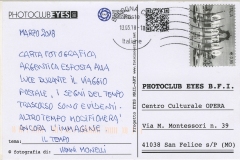 PHOTOCLUB EYES
MARZO 2018
CARTA FOTOGRAFICA
ARGENTICA ESPOSTA ALLA
LUCE DURANTE IL VIAGGIO
POSTALE, I SEGNI DEL TEMPO
TRASCORSO SONO EVIDENTI.
ALTRO TEMPO MODIFICHERÀ
ANCORA L'IMMAGINE
IL TEMPO
fotografia di:
PHOTOCLUB EYES B.F.I.
Centro Culturale OPERA
Via M. Montessori n. 39
41038 San Felice s/P (MO)
Italiane